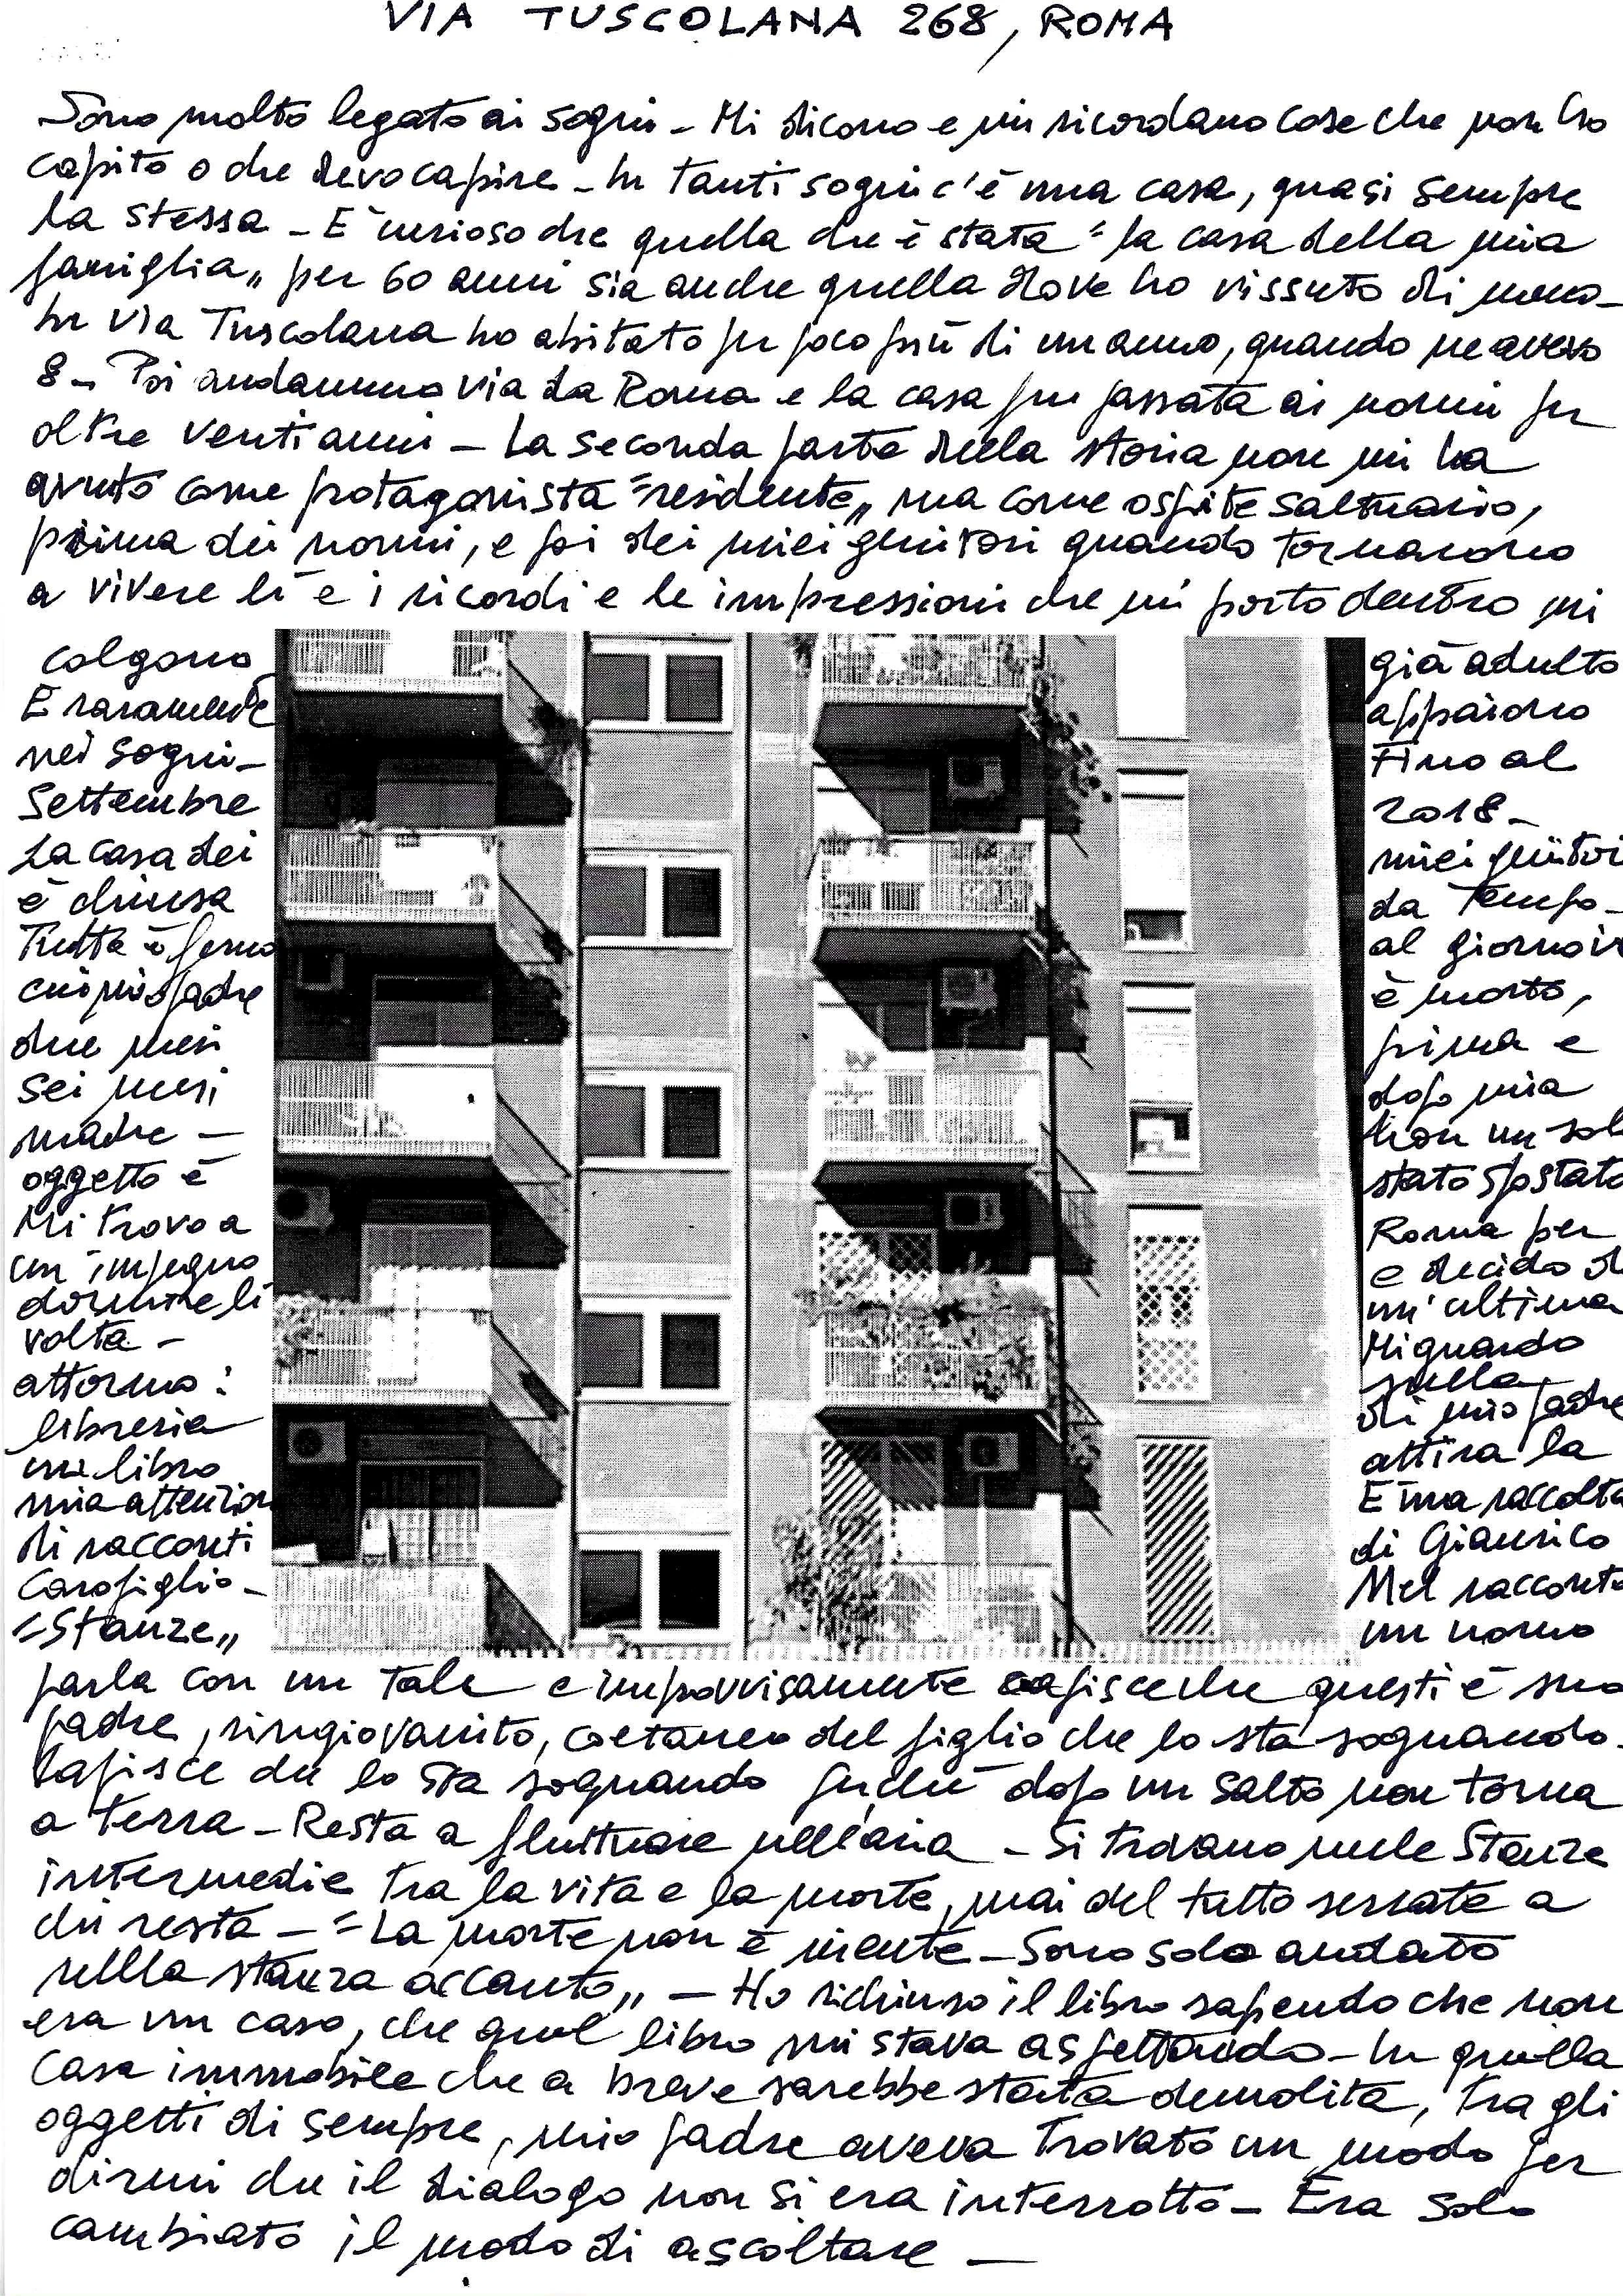 VIA TUSCOLANA 268, ROMA
Sono molto legato ai sogni - Mi dicono e mi ricordano cose che non ho
capito o che devo capire - In tanti sogni c'è una casa, quasi sempre
la stessa - E' curioso che quella che è stata "la casa della mia
famiglia" per 60 anni sia anche quella dove ho vissuto di meno -
In via Tuscolana ho abitato per poco più di un anno, quando ne avevo
8 - Poi andammo via da Roma e la casa fu passata ai nonni per
oltre venti anni - La seconda parte della storia non mi ha
avuto come protagonista "residente" ma come ospite saltuario,
prima dei nonni, e poi dei miei genitori quando tornarono
a vivere lì e i ricordi e le impressioni che mi porto dentro mi
colgono già adulto
E raramente appaiono
nei sogni - Fino al
Settembre 2018 -
La casa dei miei genitori
è chiusa da tempo -
Tutto è fermo al giorno in
cui mio padre è morto,
due mesi prima e
sei mesi dopo mia
madre - Non un sol
oggetto è stato spostato
Mi trovo a Roma per
un impegno e decido d
dormire lì un'ultima
volta - Mi guardo
attorno: sulla
libreria di mio padre
un libro attira la
mia attenzion E' una raccolta
di racconti di Gianrico
Carofiglio - Nel racconto
"Stanze" un uomo
parla con un tale e improvvisamente capisce che questi è suo
padre, ringiovanito, coetaneo del figlio che lo sta sognando.
Capisce che lo sta sognando perché dopo un salto non torna
a terra - Resta a fluttuare nell'aria - Si trovano nelle stanze
intermedie tra la vita e la morte, mai del tutto serrate a
chi resta - "La morte non è niente - Sono solo andato
nella stanza accanto" - Ho richiuso il libro sapendo che non
era un caso, che quel libro mi stava aspettando - In quella
casa immobile che a breve sarebbe stata demolita, tra gli
oggetti di sempre, mio padre aveva trovato un modo per
dirmi che il dialogo non si era interrotto - Era solo
cambiato il modo di ascoltare -